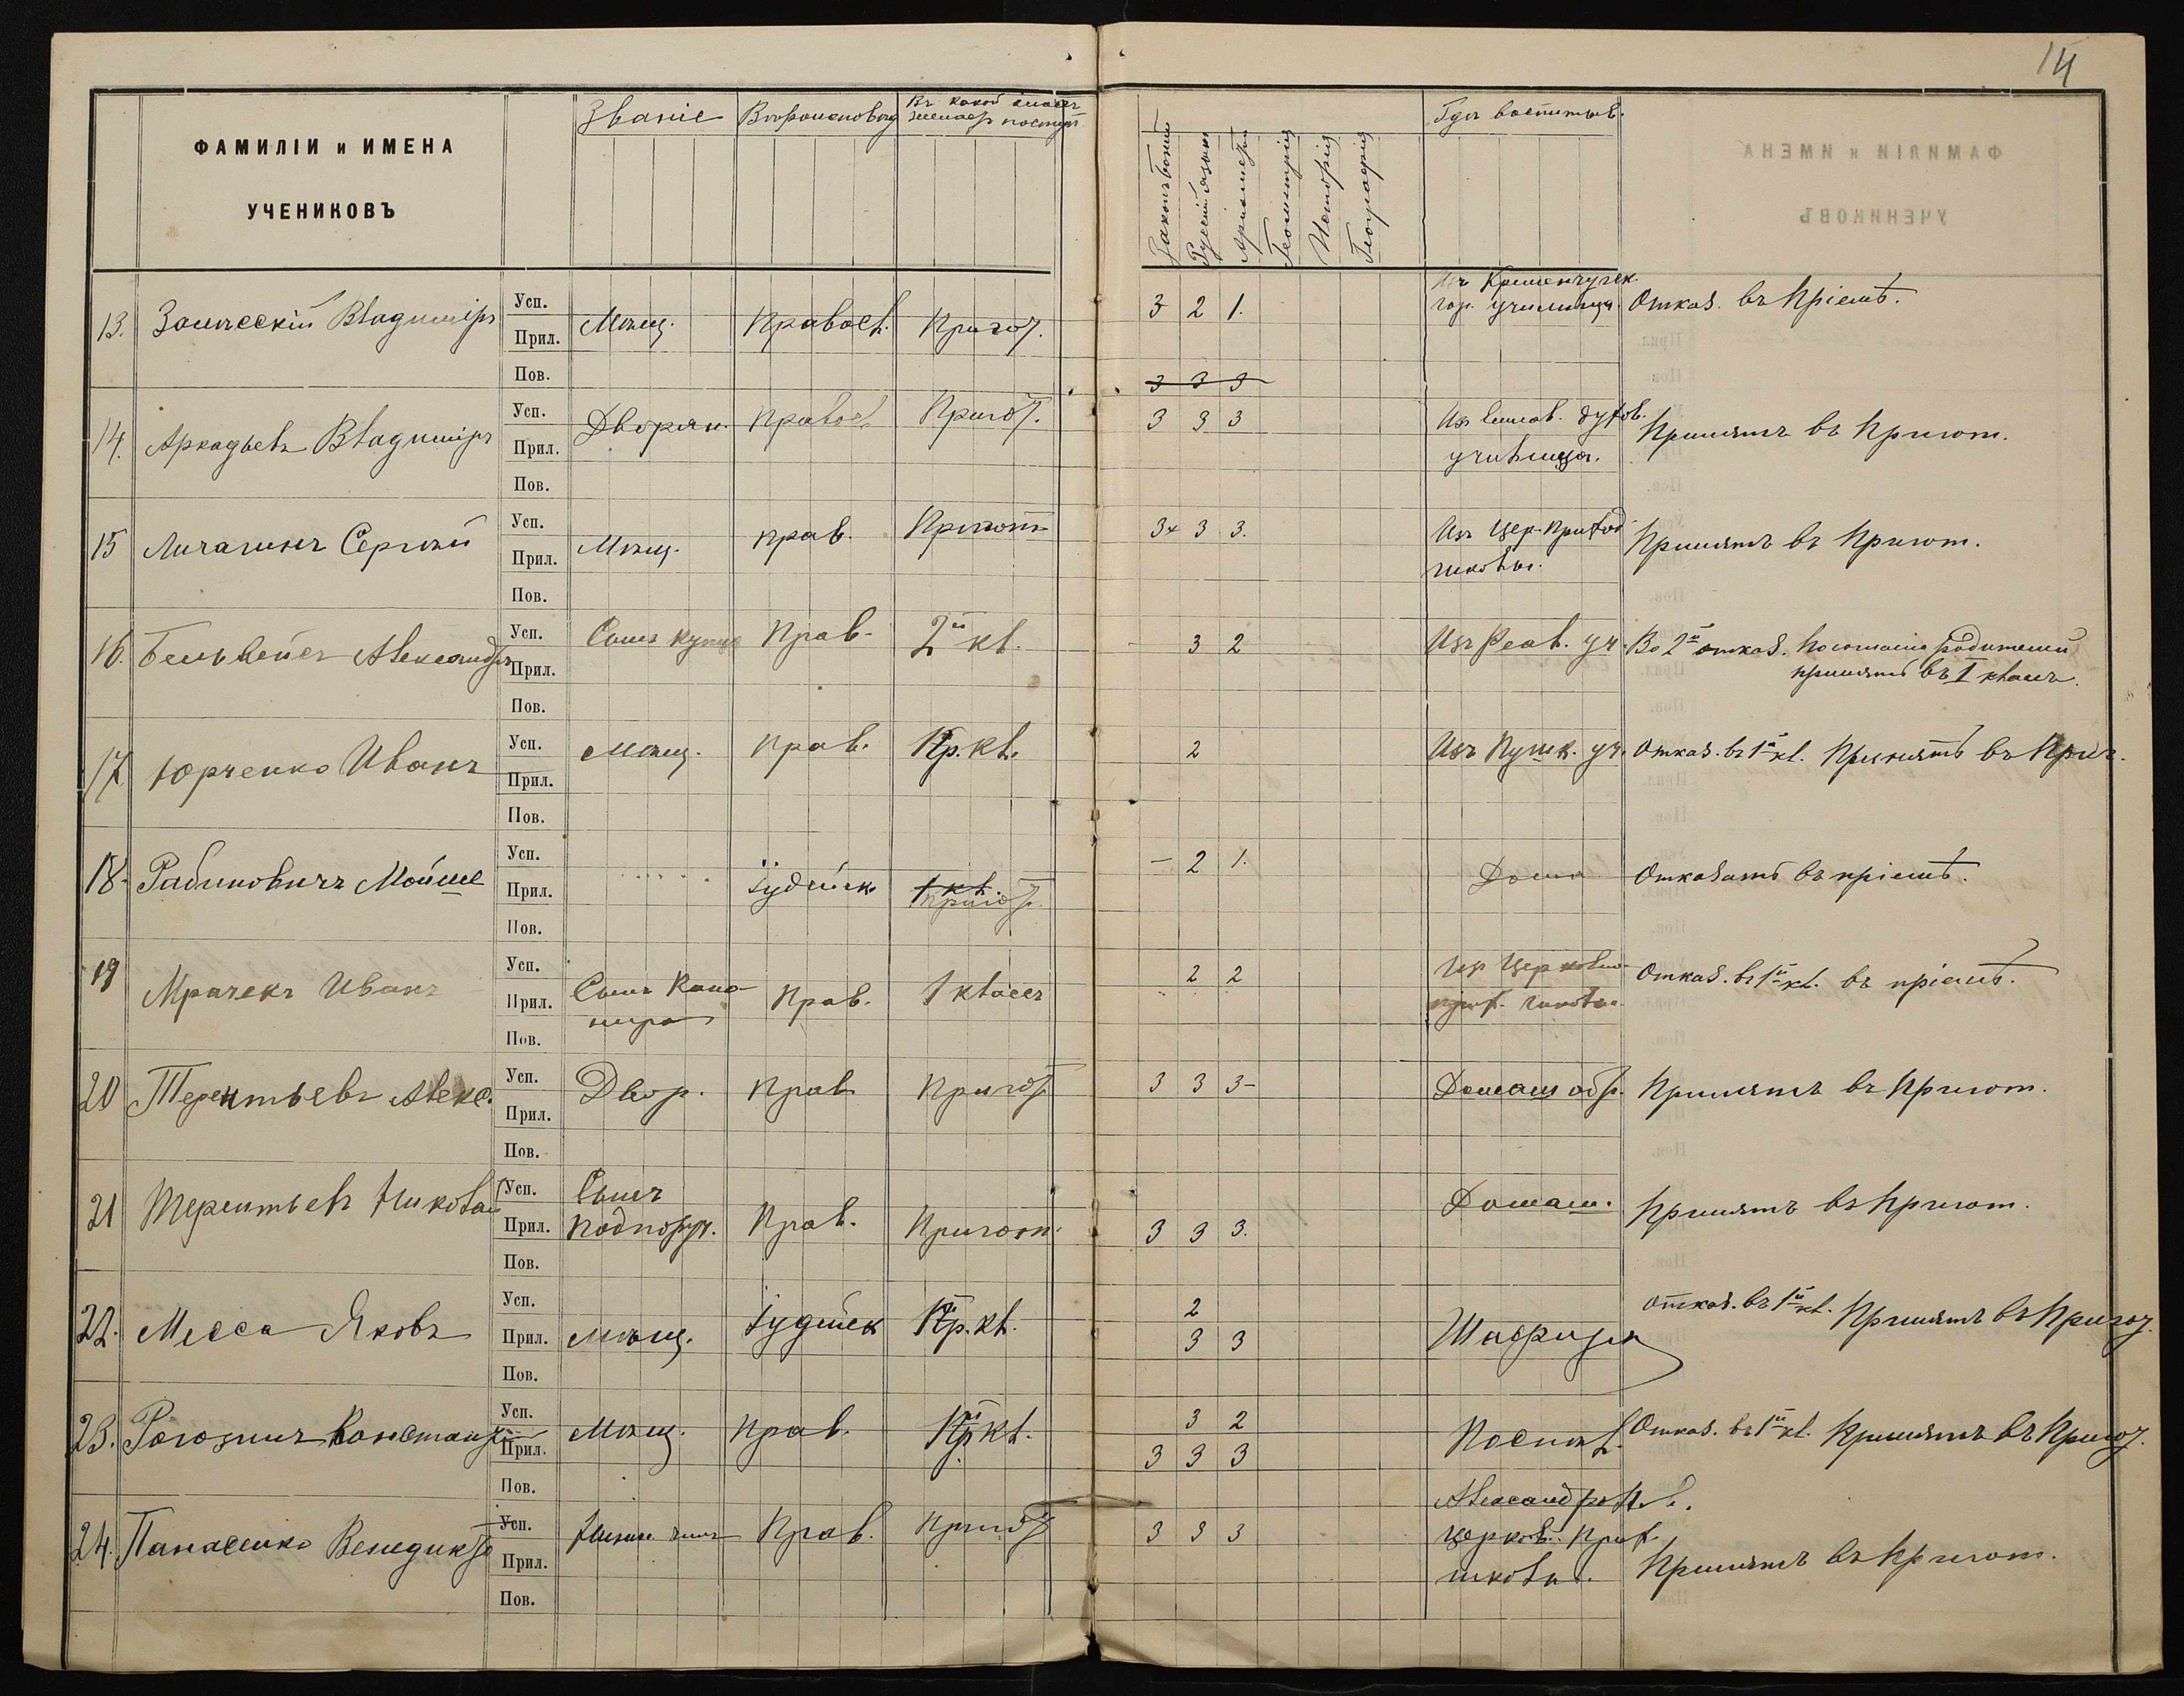 14
ФАМИЛІИ и ИМЕНА
УЧЕНИКОВЪ
Званіе Вѣроисповѣд Въ какой классъ желаетъ поступ.
Законъ Божій Русскій языкъ Ариѳметика Геометрія Исторія Географія
Гдѣ воспитыв.
13. Владиміръ Усп. Прил. Пов. Мѣщ. Правосл. Пригот. 3 2 1. Изъ Кременчугск.
гор. училища. Отказ. въ пріемѣ.
3 3 3
14. Аркадьевъ Владиміръ Усп. Прил. Пов. Дворян. Правосл. Пригот. 3 3 3 Из духов.
училища. Принятъ въ пригот.
15 Личагинъ Сергѣй Усп. Прил. Пов. Мѣщ. прав. Пригот. 3+ 3 3. Изъ Цер. приход
школы. Принятъ въ пригот.
16. Александръ Усп. Прил. Пов. Сынъ купца Прав. 2й кл. 3 2 Изъ Реал. уч. Во 2й отказ. По желанію родителей
принятъ въ I классъ.
17 Юрченко Иванъ Усп. Прил. Пов. Мѣщ. Прав. Пр. кл. 2 Изъ Пушк. уч. Отказ. въ 1й кл. Принятъ въ Приг.
18. Рабиновичъ Мойше Усп. Прил. Пов. Іудейск. 1 кл.
Пригот. – 2 1. Дома Отказать въ пріемѣ.
19 Мрачекъ Иванъ Усп. Прил. Пов. Сынъ Кано-
нира Прав. 1 классъ 2 2 Изъ Церковно-
прих. школы. Отказ. въ 1й кл. въ пріемѣ.
20 Терентьевъ Алекс. Усп. Прил. Пов. Двор. Прав. Пригот. 3 3 3- Домаш обр. Принятъ въ пригот.
21 Терентьевъ Николай Усп. Прил. Пов. Сынъ
Подпор. Прав. Пригот. 3 3 3. Домаш. Принятъ въ пригот.
22. Месса Яковъ Усп. Прил. Пов. Мѣщ. Іудейск Пр. кл. 2
3 3 Отказ. въ 1й кл. Принятъ въ Пригот.
23. Рогозинъ Констант. Усп. Прил. Пов. Мѣщ. Прав. Пр кл. 3 2
3 3 3 Отказ. въ 1й кл. Принятъ въ Пригот.
24. Панасенко Венедиктъ Усп. Прил. Пов. Нижн. чинъ Прав. Пригот. 3 3 3 Александр.
церков. прих.
школы. Принятъ въ пригот.